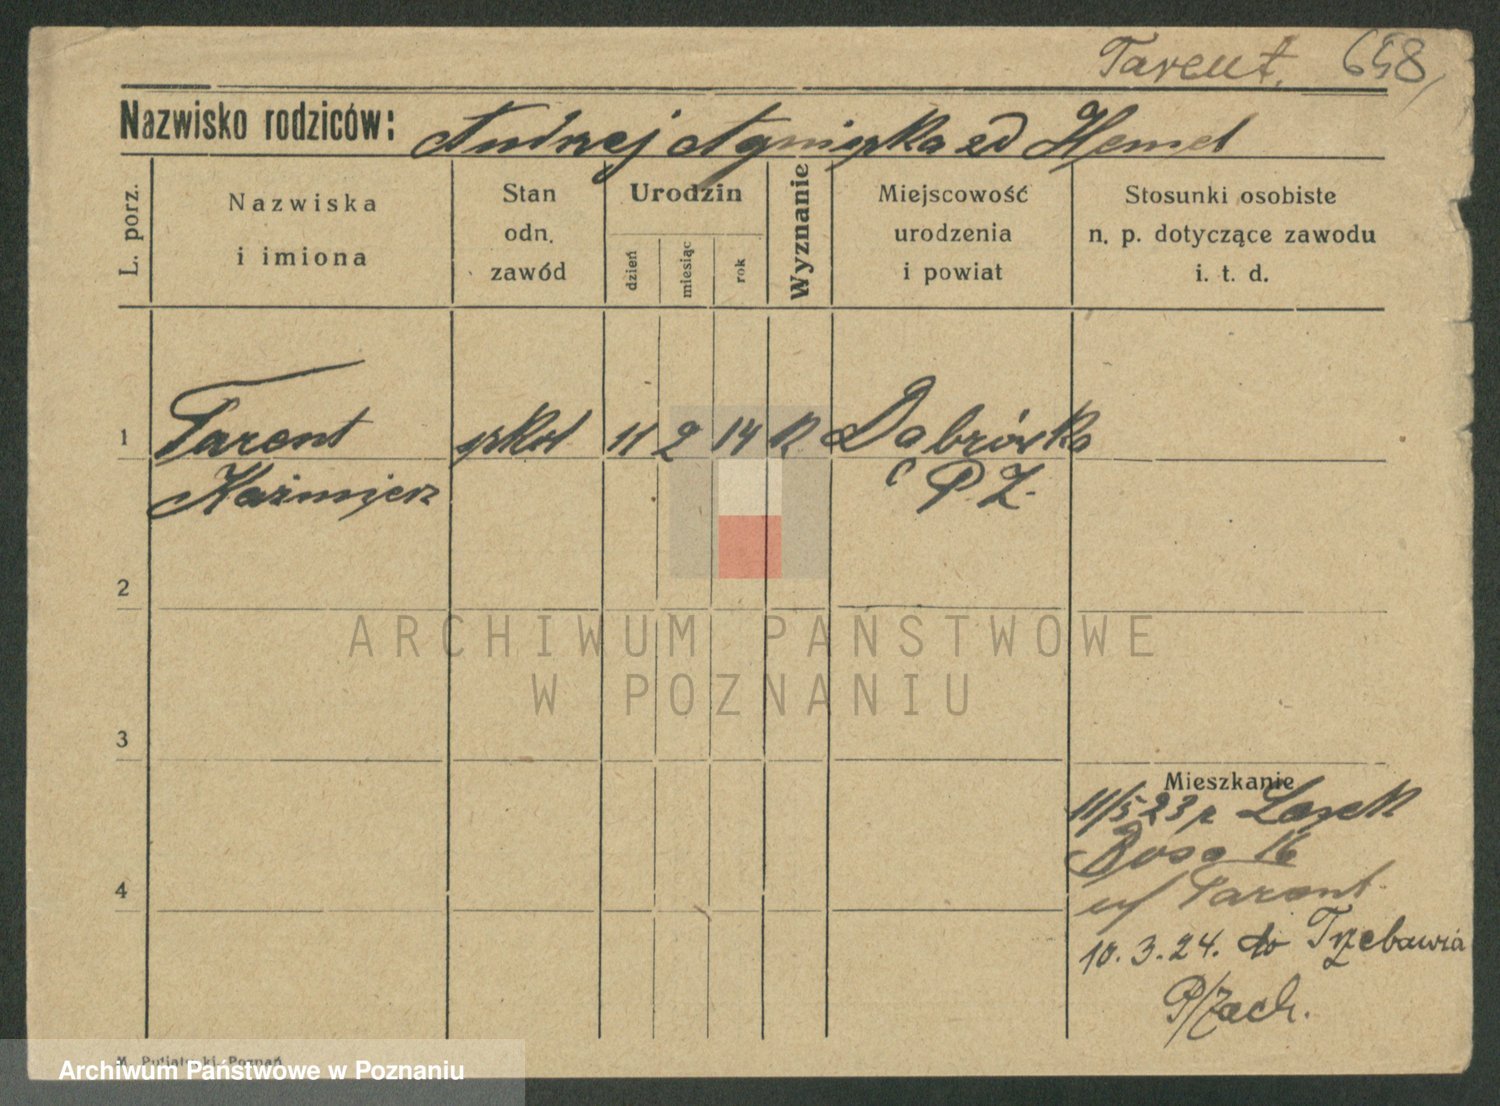 Tarent. 658
Nazwisko rodziców: Andrzej Agnieszka zd Hemel
L. porz.
Nazwiska
i imiona
Stan
odn.
zawód
Urodzin
dzień
miesiąc
rok
Wyznanie
Miejscowość
urodzenia
i powiat
Stosunki osobiste
n. p. dotyczące zawodu
i. t. d.
1 Tarent 11 2 14 Dąbrówka
Kaźmierz P. Z.
2
ARCHIWUM PAŃSTWOWE
W POZNANIU
3
Mieszkanie
11/5 23 z Lasek
16
4
Tarent
10. 3. 24. do Trzebawia
P/Zach.
Poznań
Archiwum Państwowe w Poznaniu